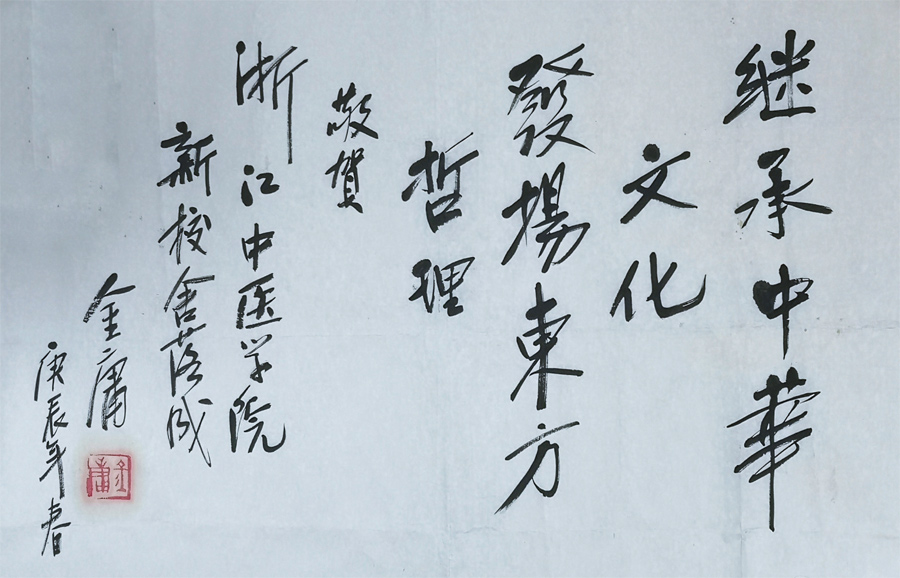 继承中華
文化
發揚東方
哲理
敬賀
浙江中医学院
新校舍落成
金庸
庚辰年春
金庸